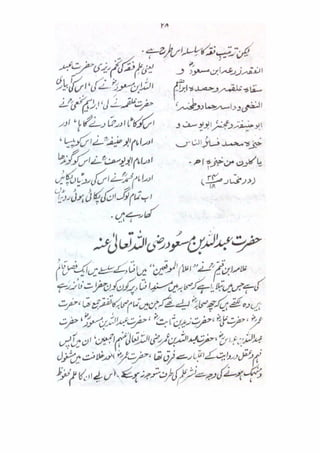 ۲۸
لیکن ترتیب فقہ کا سلسلہ اس طرح ہے۔
الفقہ زرعہ ابن مسعودؓ و
سقاہ علقمہ و حصدہ ابراہیم
النخعی و داسہ حماد و طحنہ
ابو حنیفہ و عجنہ ابو یوسف و
خبزہ محمد فسائر الناس
یاکلون من خبزہ اھ۔
(در مختار
یعنی علم فقہ کی تخم ریزی حضرت عبد
اللہ بن مسعودؓ نے کی، اس کی بیاری
حضرت علقمہ نے کی، ابراہیم نخعی نے
اس کو کاٹا اور حماد نے گاہا، اور
اور امام ابو حنیفہؒ نے اس کو پیسا،
اور امام ابو یوسفؒ نے اس کو گوندھا
اور امام محمدؒ نے اس کی روٹیاں پکائیں
اب تمام لوگ ان کی پکائی ہوئی روٹیاں
کھا رہے ہیں۔
حضرت عبداللہ بن مسعود رضی اللہ تعالیٰ عنہ
علامہ ابن قیمؒ نے "اعلام الموقعین" میں افتاء کے سلسلے میں ایک فصل قائم
کی ہے جس میں بتلایا ہے کہ صحابہ میں مسند افتاء پر کون کون حضرات فائز رہے
ہیں وہ لکھتے ہیں کہ چھ صحابہؓ ایسے تھے کہ جن میں تمام صحابہ کا تفقہ جمع تھا، حضرت
عمرؓ، حضرت علیؓ، حضرت زید بن ثابتؓ، حضرت عبداللہ بن مسعودؓ، حضرت
عبداللہ بن عباسؓ، حضرت عبداللہ بن عمر رضی اللہ تعالیٰ عنہم اجمعین، ان میں آپس
فہم و عقل و روایت کے اعتبار سے فرق تھا، حضرت عمرؓ امور خلافت میں مشغول
و منہمک ہونے کی وجہ سے نشر علم کی طرف متوجہ نہ ہو سکے، اس لیے ان کا علم محفوظ